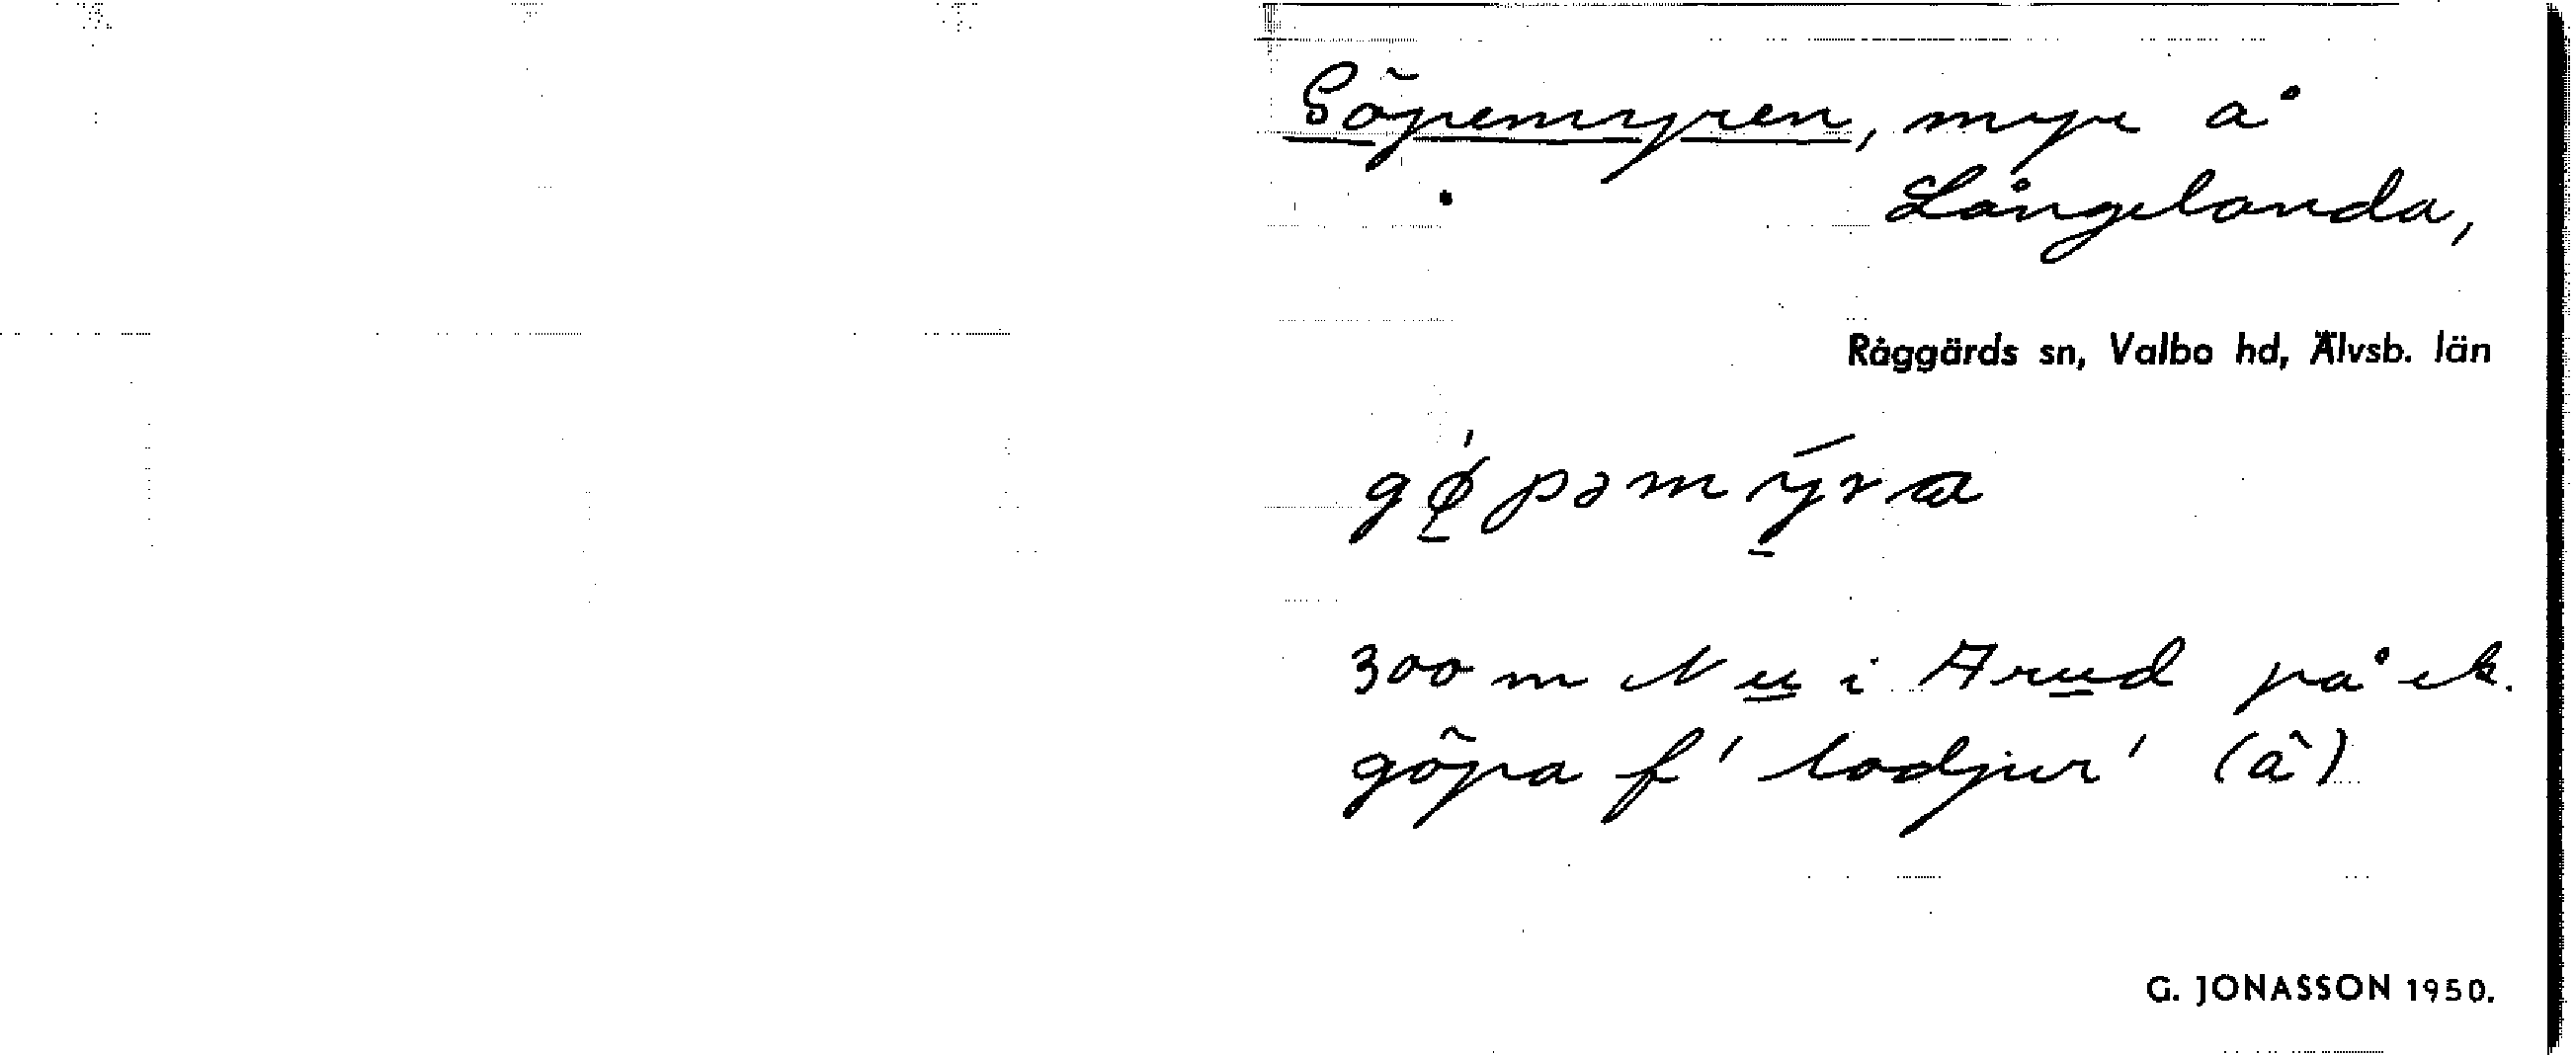 Göpemyren, myr å
Långelanda,
Råggärds sn, Valbo hd, Älvsb. län
gǿpəmýra
300 m N u i Arud på ek.
göpa f 'lodjur' (â)
G. JONASSON 1950.